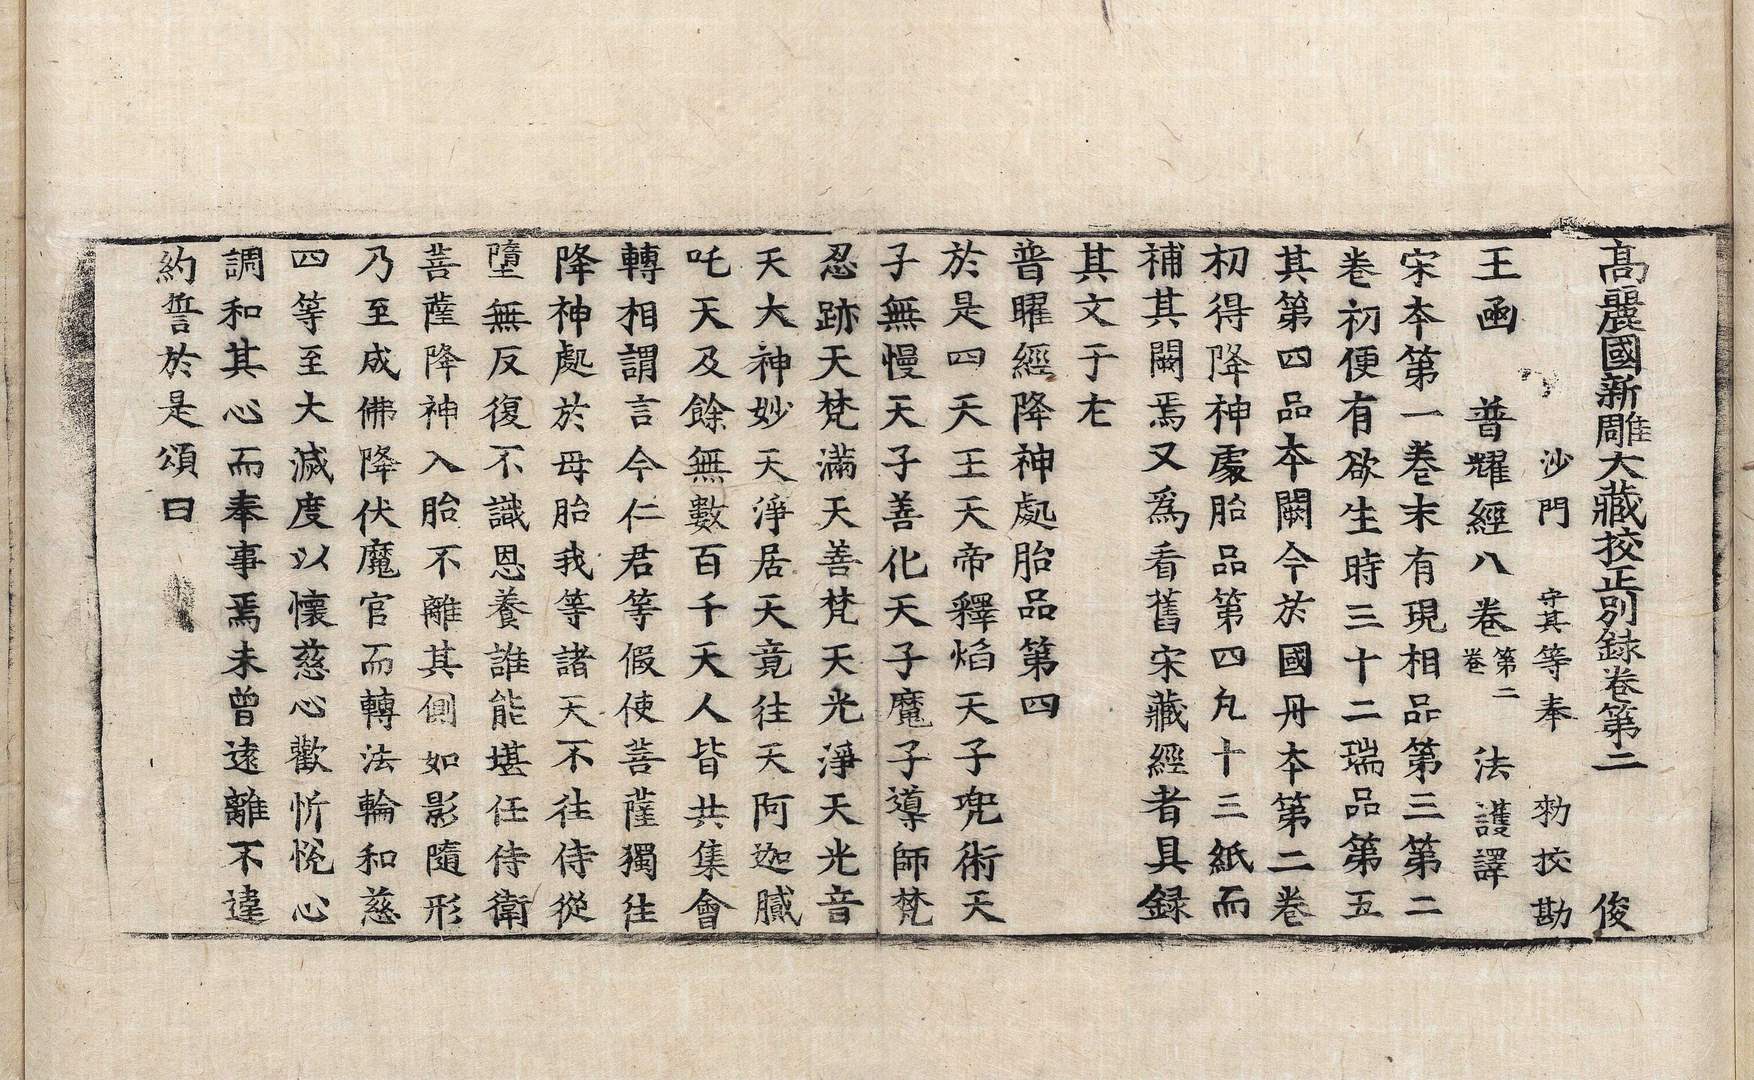 高麗國新雕大藏校正別錄卷第二 俊
沙門 守其等奉 勑校勘
王函 普耀經八卷 第二卷 法護譯
宋本第一卷末有現相品第三第二
卷初便有欲生時三十二瑞品第五
其第四品本闕今於國丹本第二卷
初得降神處胎品第四凡十三紙而
補其闕焉又爲看舊宋藏經者具録
其文于左
普曜經降神處胎品第四
於是四天王天帝釋焰天子兜術天
子無慢天子善化天子魔子導師梵
忍跡天梵滿天善梵天光淨天光音
天大神妙天淨居天竟徃天阿迦膩
吒天及餘無數百千天人皆共集會
轉相謂言今仁君等假使菩薩獨徃
降神處於母胎我等諸天不徃侍從
墮無反復不識恩養誰能堪任侍衛
菩薩降神入胎不離其側如影隨形
乃至成佛降伏魔官而轉法輪和慈
四等至大滅度以懷慈心歡忻悅心
調和其心而奉事焉未曾遠離不違
約誓於是頌曰